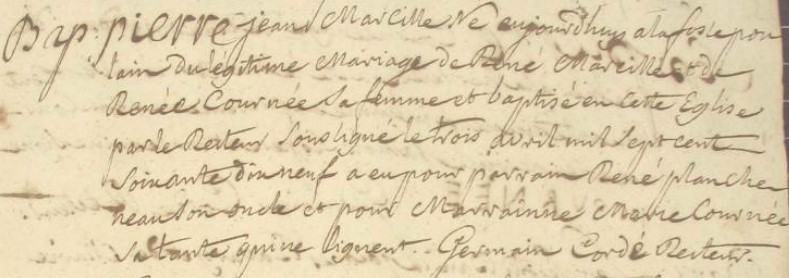 Bap. pierre jean Marcille Né aujourdhuy a la fosse pou
lain du légitime Mariage de René Marcille et de
Renée Cournée Sa femme et baptisé en Cette Eglise
par le Recteur Soussigné le trois avril mil Sept cent
Soixante dix neuf a eu pour parrain René planche
neau Son oncle et pour Marrainne Marie Cournée
Sa tante qui ne Signent. Germain Cordé Recteur.